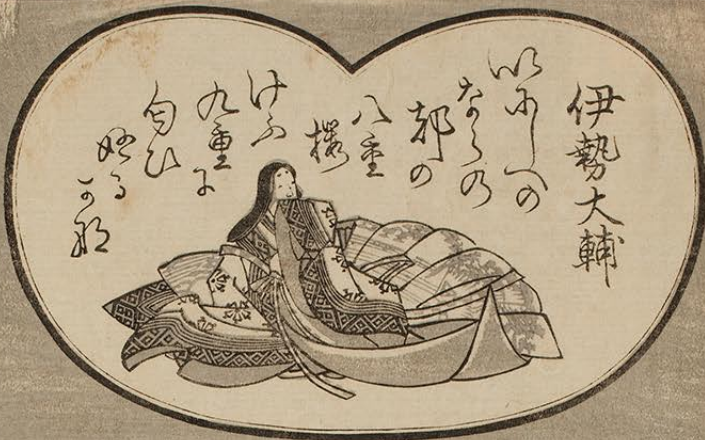 伊勢大輔
いにしへの
ならの
都の
八重
櫻
けふ
九重に
匂ひ
ぬる
かな